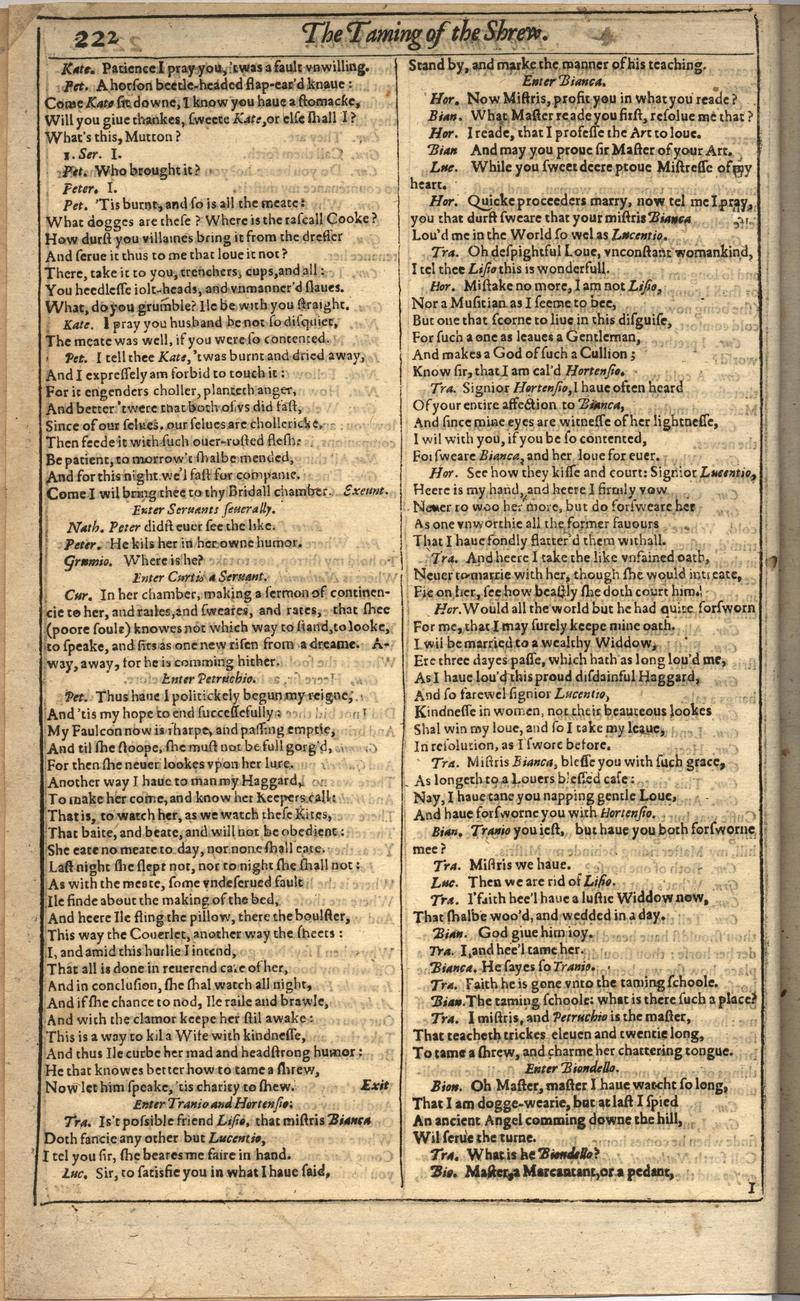 222
The Taming of the Shrew.
Kate. Patience I pray you, 'twas a fault vnwilling.
Pet. A horson beetle-headed flap-ear'd knaue :
Come Kate sit downe, I know you haue a stomacke,
Will you giue thankes, sweete Kate, or else shall I ?
What's this, Mutton ?
1. Ser. I.
Pet. Who brought it ?
Peter. I.
Pet. 'Tis burnt, and so is all the meate :
What dogges are these ? Where is the rascall Cooke ?
How durst you villaines bring it from the dresser
And serue it thus to me that loue it not ?
There, take it to you, trenchers, cups, and all :
You heedlesse iolt-heads, and vnmanner'd slaues.
What, do you grumble? Ile be with you straight.
Kate. I pray you husband be not so disquiet,
The meate was well, if you were so contented.
Pet. I tell thee Kate, 'twas burnt and dried away,
And I expressely am forbid to touch it :
For it engenders choller, planteth anger,
And better 'twere that both of vs did fast,
Since of our selues, our selues are chollericke,
Then feede it with such ouer-rosted flesh:
Be patient, to morrow't shalbe mended,
And for this night we'l fast for companie.
Come I wil bring thee to thy Bridall chamber. Exeunt.
Enter Seruants seuerally.
Nath. Peter didst euer see the like.
Peter. He kils her in her owne humor.
Grumio. Where is he?
Enter Curtis a Seruant.
Cur. In her chamber, making a sermon of continen-
cie to her, and railes, and sweares, and rates, that shee
(poore soule) knowes not which way to stand, to looke,
to speake, and sits as one new risen from a dreame. A-
way, away, for he is comming hither.
Enter Petruchio.
Pet. Thus haue I politickely begun my reigne,
And 'tis my hope to end successefully :
My Faulcon now is sharpe, and passing emptie,
And til she stoope, she must not be full gorg'd,
For then she neuer lookes vpon her lure.
Another way I haue to man my Haggard,
To make her come, and know her Keepers call:
That is, to watch her, as we watch these Kites,
That baite, and beate, and will not be obedient :
She eate no meate to day, nor none shall eate.
Last night she slept not, nor to night she shall not :
As with the meate, some vndeserued fault
Ile finde about the making of the bed,
And heere Ile fling the pillow, there the boulster,
This way the Couerlet, another way the sheets :
I, and amid this hurlie I intend,
That all is done in reuerend care of her,
And in conclusion, she shal watch all night,
And if she chance to nod, Ile raile and brawle,
And with the clamor keepe her stil awake :
This is a way to kil a Wife with kindnesse,
And thus Ile curbe her mad and headstrong humor :
He that knowes better how to tame a shrew,
Now let him speake, 'tis charity to shew. Exit
Enter Tranio and Hortensio:
Tra. Is't possible friend Lisio, that mistris Bianca
Doth fancie any other but Lucentio,
I tel you sir, she beares me faire in hand.
Luc. Sir, to satisfie you in what I haue said,
Stand by, and marke the manner of his teaching.
Enter Bianca.
Hor. Now Mistris, profit you in what you reade ?
Bian. What Master reade you first, resolue me that ?
Hor. I reade, that I professe the Art to loue.
Bian And may you proue sir Master of your Art.
Luc. While you sweet deere ptoue Mistresse of my
heart.
Hor. Quicke proceeders marry, now tel me I pray,
you that durst sweare that your mistris Bianca
Lou'd me in the World so wel as Lucentio.
Tra. Oh despightful Loue, vnconstant womankind,
I tel thee Lisio this is wonderfull.
Hor. Mistake no more, I am not Lisio,
Nor a Musitian as I seeme to bee,
But one that scorne to liue in this disguise,
For such a one as leaues a Gentleman,
And makes a God of such a Cullion ;
Know sir, that I am cal'd Hortensio.
Tra. Signior Hortensio, I haue often heard
Of your entire affection to Bianca,
And since mine eyes are witnesse of her lightnesse,
I wil with you, if you be so contented,
Forsweare Bianca, and her loue for euer.
Hor. See how they kisse and court: Signior Lucentio,
Heere is my hand, and heere I firmly vow
Neuer to woo her more, but do forsweare her
As one vnworthie all the former fauours
That I haue fondly flatter'd them withall.
Tra. And heere I take the like vnfained oath,
Neuer to marrie with her, though she would intreate,
Fie on her, see how beastly she doth court him.
Hor. Would all the world but he had quite forsworn
For me, that I may surely keepe mine oath.
I wil be married to a wealthy Widdow,
Ere three dayes passe, which hath as long lou'd me,
As I haue lou'd this proud disdainful Haggard,
And so farewel signior Lucentio,
Kindnesse in women, not their beauteous lookes
Shal win my loue, and so I take my leaue,
In resolution, as I swore before.
Tra. Mistris Bianca, blesse you with such grace,
As longeth to a Louers blessed case :
Nay, I haue tane you napping gentle Loue,
And haue forsworne you with Hortensio.
Bian. Tranio you iest, but haue you both forsworne
mee ?
Tra. Mistris we haue.
Luc. Then we are rid of Lisio.
Tra. I'faith hee'l haue a lustie Widdow now,
That shalbe woo'd, and wedded in a day.
Bian. God giue him ioy.
Tra. I, and hee'l tame her.
Bianca. He sayes so Tranio.
Tra. Faith he is gone vnto the taming schoole.
Bian. The taming schoole: what is there such a place?
Tra. I mistris, and Petruchio is the master,
That teacheth trickes eleuen and twentie long,
To tame a shrew, and charme her chattering tongue.
Enter Biondello.
Bion. Oh Master, master I haue watcht so long,
That I am dogge-wearie, but at last I spied
An ancient Angel comming downe the hill,
Wil serue the turne.
Tra. What is he Biondello?
Bio. Master, a Marcantant, or a pedant,
I